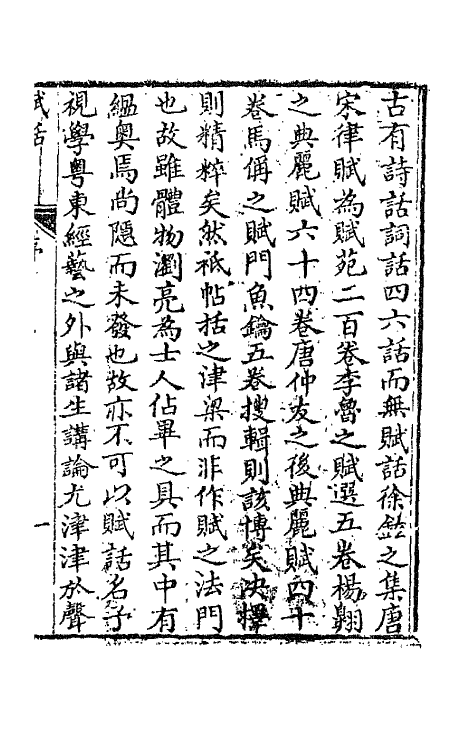 古有詩話詞話四六話而無賦話徐鍇之集唐
宋律賦為賦苑二百卷李魯之賦選五卷楊翺
之典麗賦六十四卷唐仲友之後典麗賦四十
卷馬偁之賦門魚鑰五卷搜輯則該博矣決擇
則精粹矣然祗帖括之津梁而非作賦之法門
也故雖體物瀏亮為士人佔畢之具而其中有
緼奧焉尚隱而未發也故亦不可以賦話名予
視學粤東經藝之外與諸生講論尤津津於聲
賦話 序 一